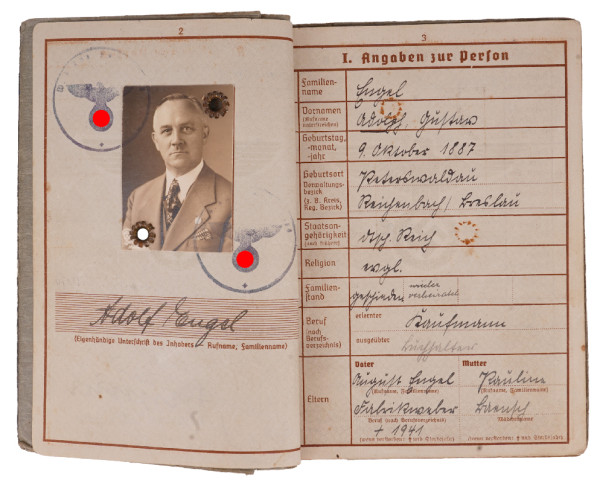 2
Adolf Engel
(Eigenhändige Unterschrift des Inhabers – Rufname, Familienname)
3
I. Angaben zur Person
Familien-
name
Engel
Vornamen
(Rufname
unterstreichen)
Adolph Gustav
Geburtstag,
-monat,
-jahr
9. Oktober 1887
Geburtsort
Verwaltungs-
bezirk
(z. B. Kreis,
Reg. Bezirk)
Peterswaldau
Reichenbach/Breslau
Staatsan-
gehörigkeit
(auch frühere)
dtsch. Reich
Religion
evgl.
Familien-
stand
geschieden wieder
verheiratet
Beruf
(nach
Berufs-
verzeichnis)
erlernter
Kaufmann
ausgeübter
Buchhalter
Eltern
Vater
Mutter
August Engel
Pauline
(Rufname, Familienname)
(Rufname, Familienname)
Fabrikweber
Baensch
Beruf (nach Berufsverzeichnis)
Mädchenname
† 1941
(wenn verstorben: † und Sterbejahr)
(wenn verstorben: † und Sterbejahr)